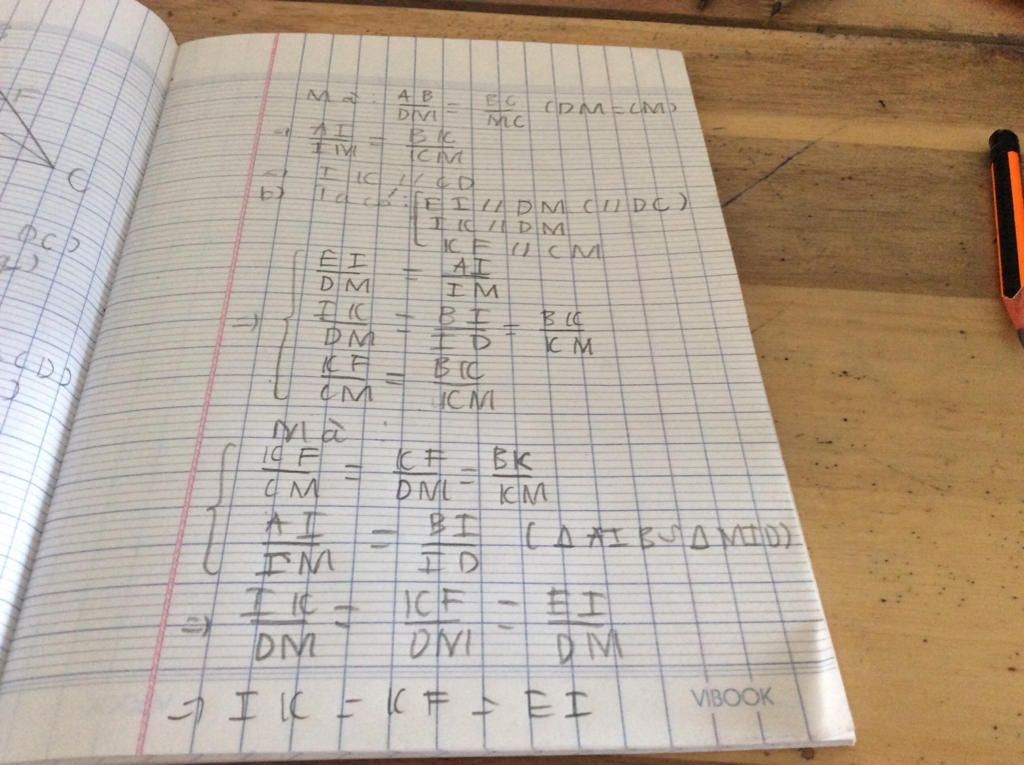 F
C
DC)
CD)
Mà : AB/DM = BC/MC (DM = CM)
→ AI/IM = BK/KM
⇒ IK // CD
b) Ta có : [EI // DM (// DC)
IK // DM
KF // CM
⇒ { EI/DM = AI/IM
IK/DM = BI/ID = BK/KM
KF/CM = BK/KM
Mà :
{ KF/CM = KF/DM = BK/KM
AI/IM = BI/ID (Δ AIB ∽ Δ MID)
⇒ IK/DM = KF/DM = EI/DM
⇒ IK = KF = EI
VIBOOK